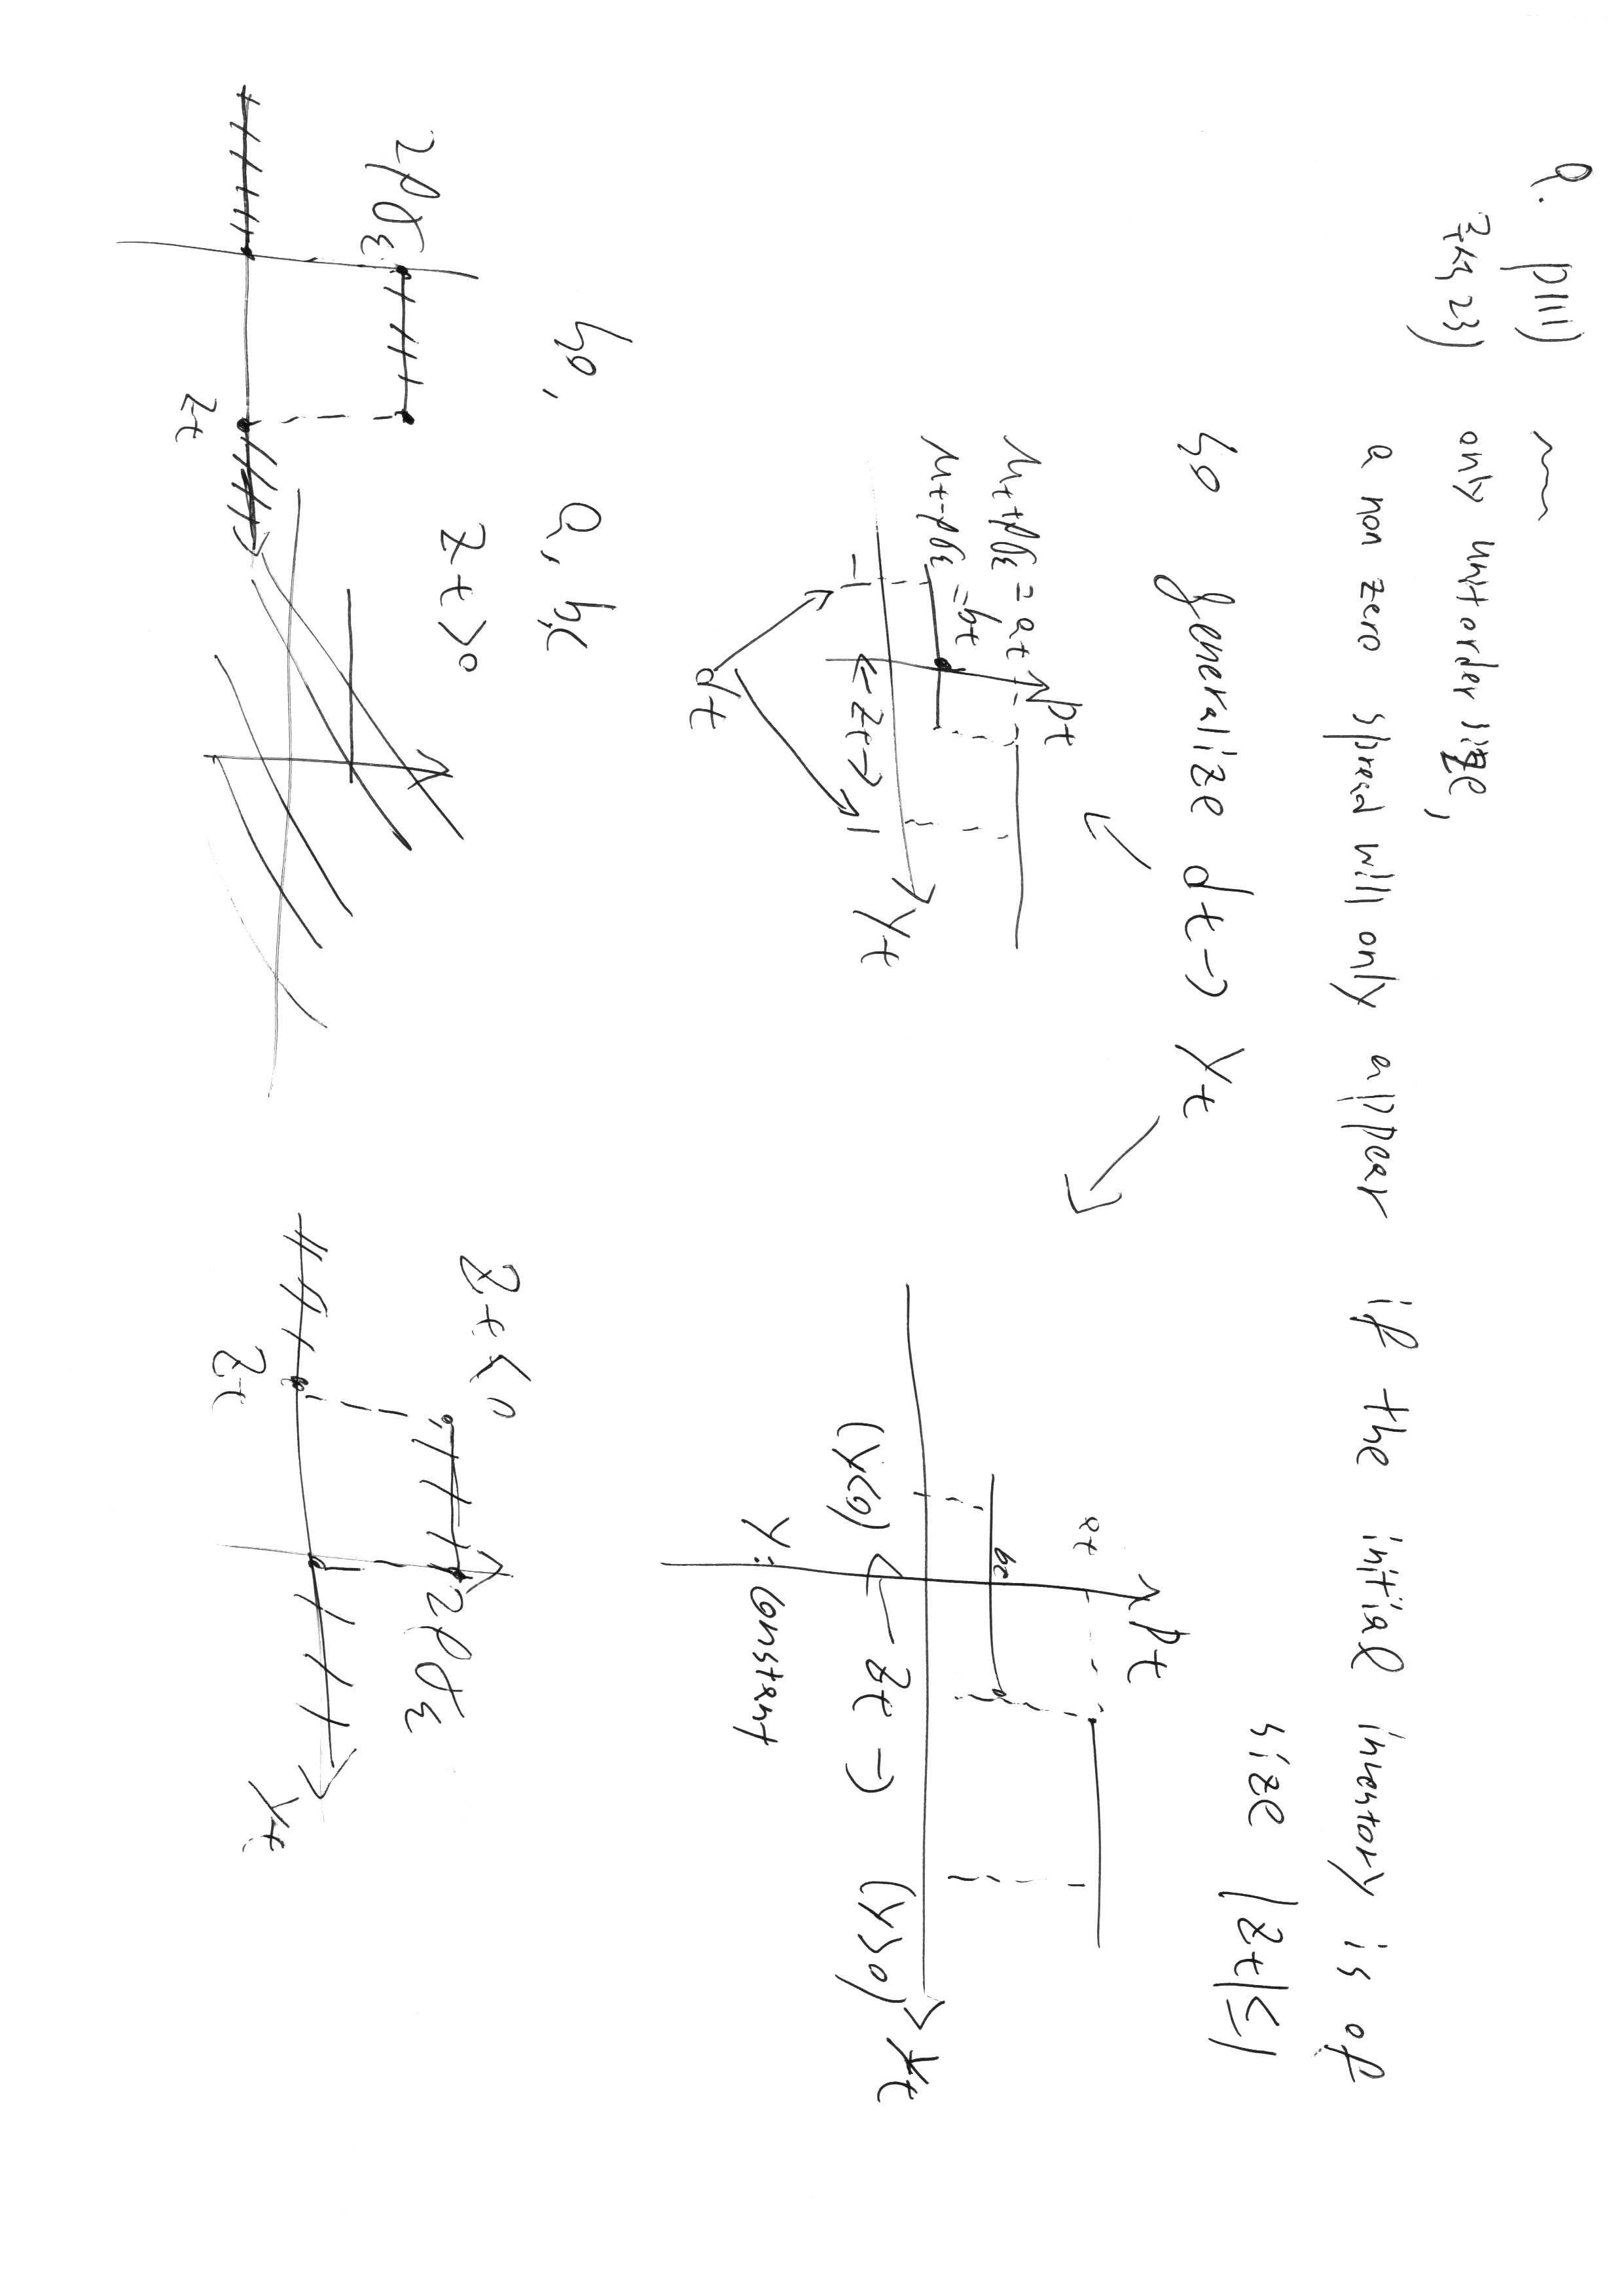 Q. p111)
주석 23) only unit order size,
a non zero spread will only appear if the initial inventory is of
size |Zt|≤1
so generalize dt→ yt
pt
μt+ρσε = at
μt-ρσε = bt
yt
-1 ←Zt→ 1
dt
pt
at
bt
yt
(y<0) ← Zt → (y>0)
y: constant
so, a, b,c
Zt>0
2ρσε
Zt
Zt<0
2ρσε
yt
Zt